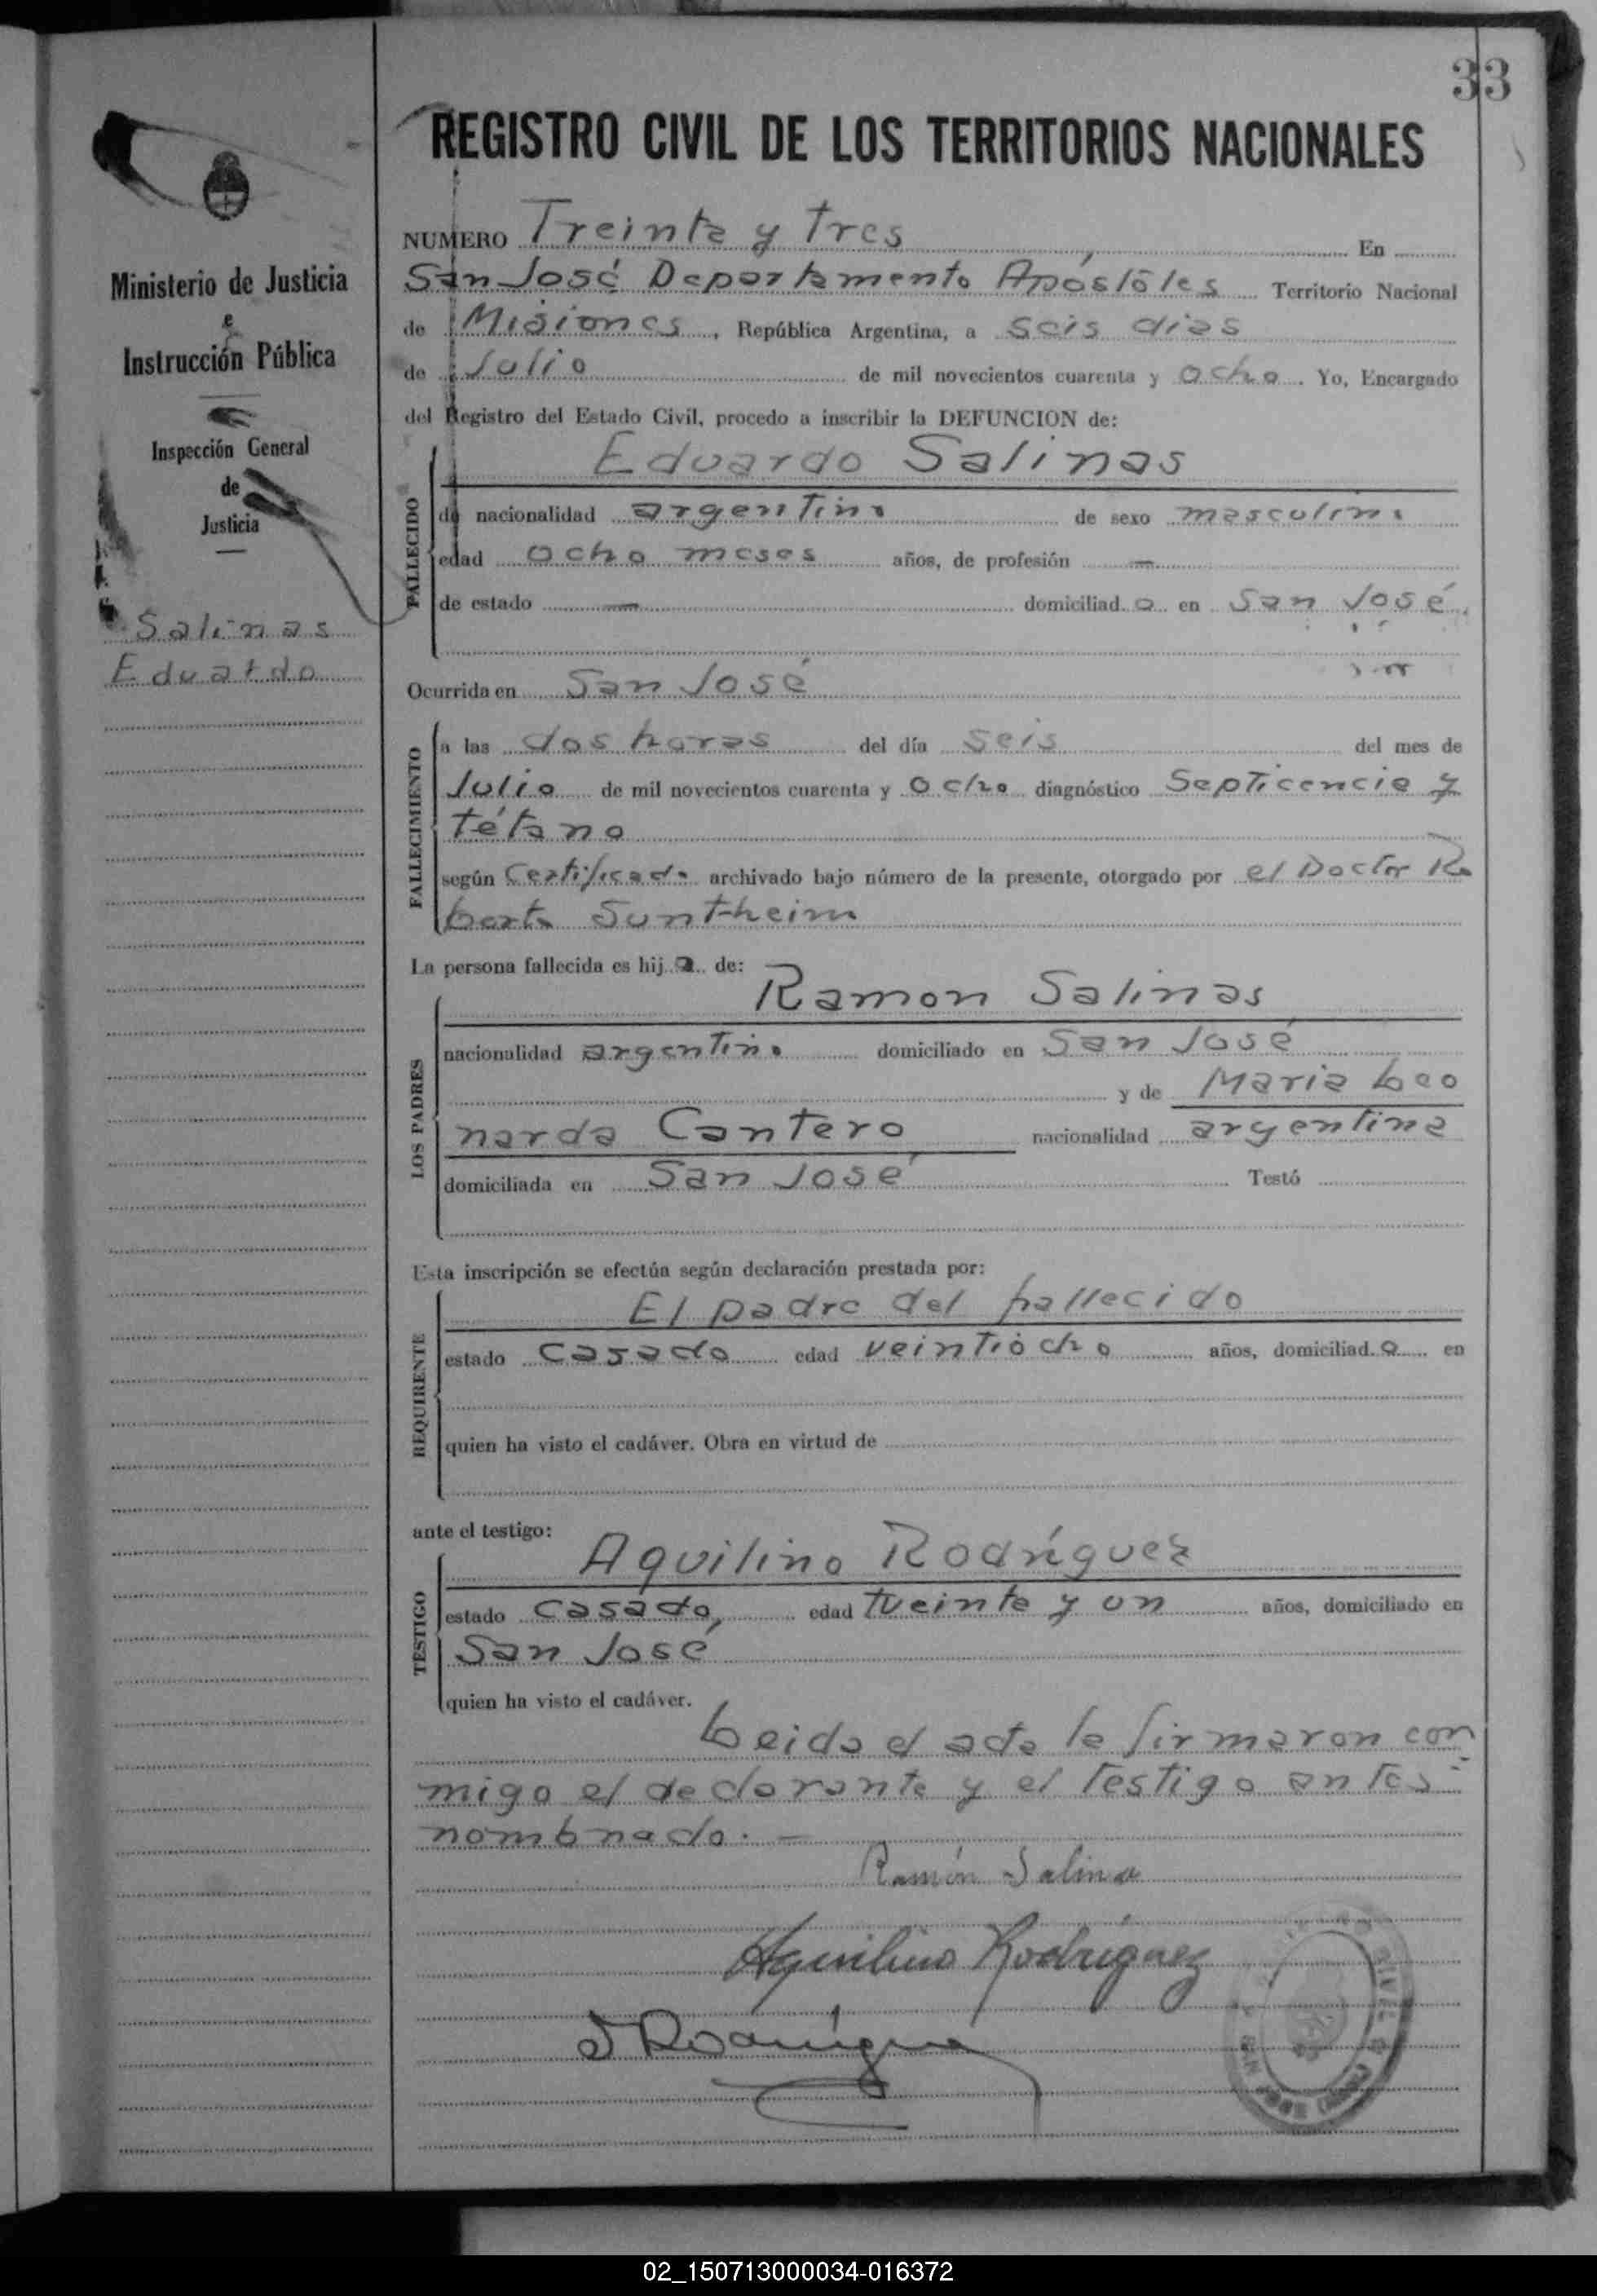 33
REGISTRO CIVIL DE LOS TERRITORIOS NACIONALES
Ministerio de Justicia
e
Instrucción Pública
Inspección General
de
Justicia
Salinas
Eduardo
NUMERO Treinta y Tres En
San José Departamento Apóstóles Territorio Nacional
de Misiones, República Argentina, a seis dias
de Julio de mil novecientos cuarenta y ocho. Yo, Encargado
del Registro del Estado Civil, procedo a inscribir la DEFUNCION de:
Eduardo Salinas
FALLECIDO
de nacionalidad argentino de sexo masculino
edad ocho meses años, de profesión —
de estado — domiciliado en San José.
Ocurrida en San José
FALLECIMIENTO
a las dos horas del día seis del mes de
Julio de mil novecientos cuarenta y ocho diagnóstico Septicencia y
tétano
según Certificado archivado bajo número de la presente, otorgado por el Doctor Ro
berto Suntheim
La persona fallecida es hijo de:
Ramon Salinas
LOS PADRES
nacionalidad argentino domiciliado en San José
y de Maria Leo
narda Cantero nacionalidad argentina
domiciliada en San José Testó
Esta inscripción se efectúa según declaración prestada por:
El padre del fallecido
REQUIRENTE
estado casado edad veintiocho años, domiciliado en
quien ha visto el cadáver. Obra en virtud de
ante el testigo:
Aquilino Rodríguez
TESTIGO
estado casado, edad treinta y un años, domiciliado en
San José
quien ha visto el cadáver.
Leida el acta la firmaron con
migo el declarante y el testigo antes
nombrado. —
Ramón Salina
Aquilino Rodríguez
J Rodríguez
02_150713000034-016372